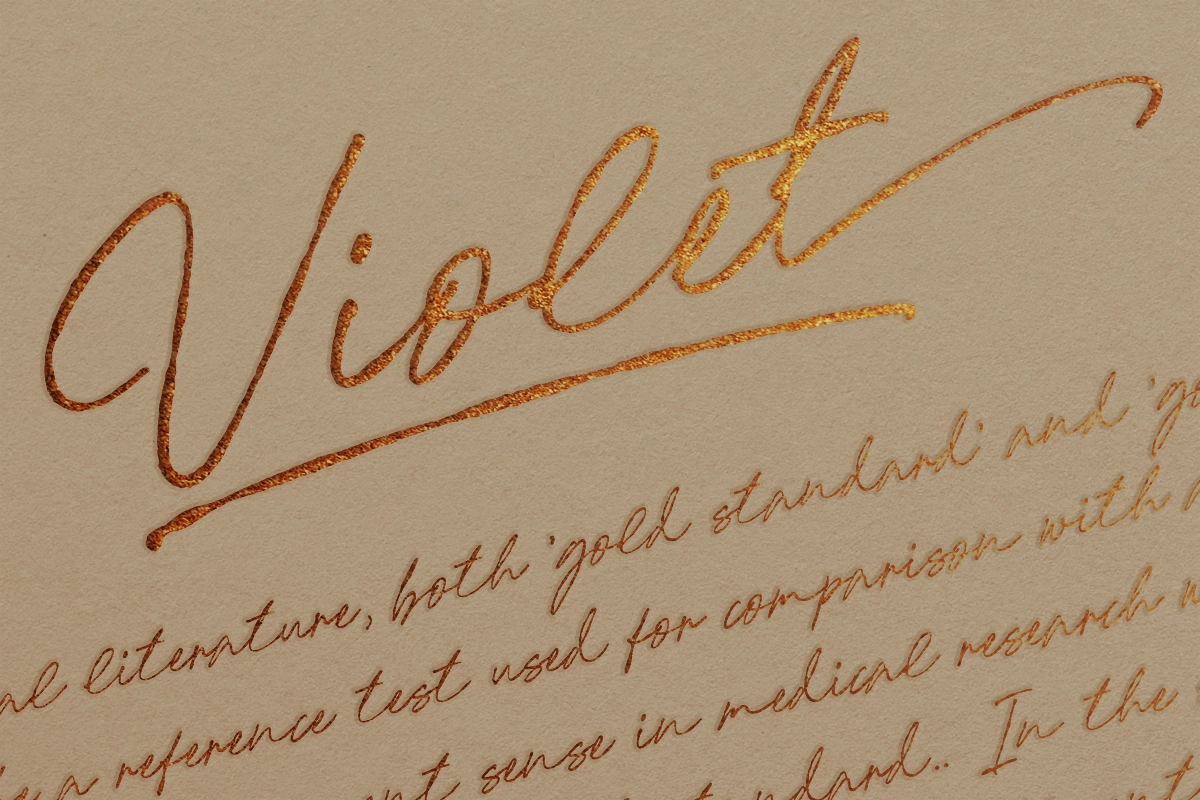 Violet
al literature, both 'gold standard' and 'go
a reference test used for comparison with a
sense in medical research
In the